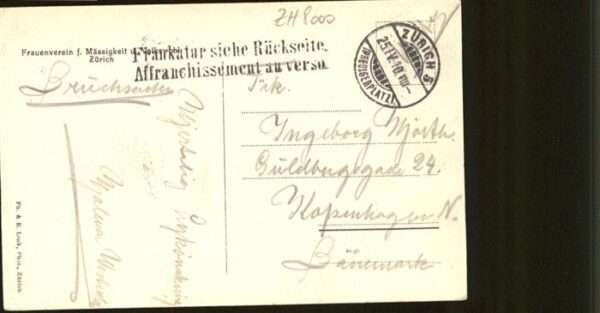 ZH 8000
Frauenverein f. Mässigkeit u. Volkswohl
Zürich
Frankatur siehe Rückseite.
Affranchissement au verso.
ZÜRICH 5
25.IV.10.VIII-
(PREDIGERPLATZ)
Drucksache
Frk.
Ingeborg Hjorth.
Guldbergsgade 24.
Kopenhagen N.
Dänemark
Hjertelig
Ph. & E. Link, Phot., Zürich